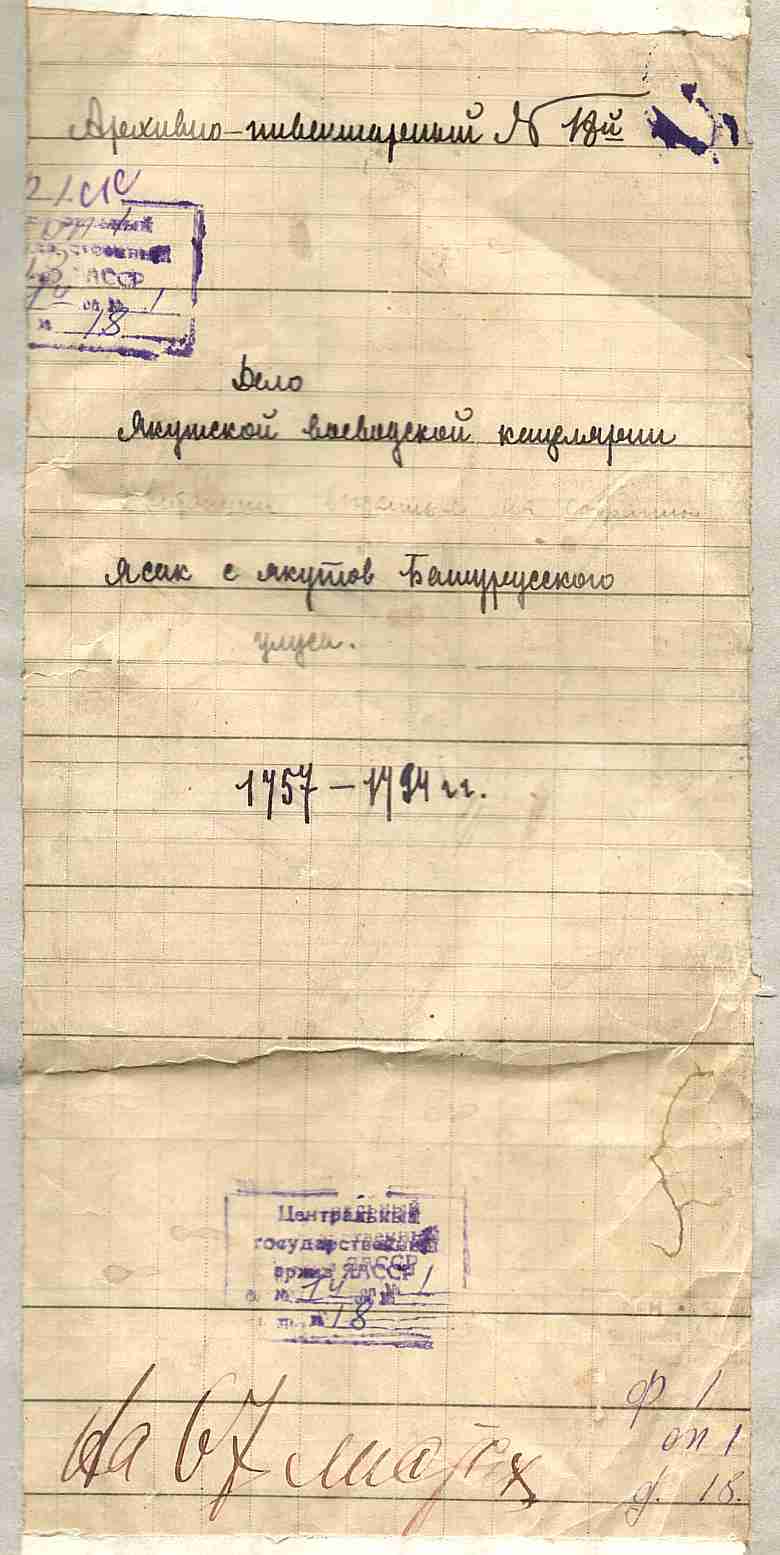 Архивно-инвентарный № 18й
ЯАССР
оп. № 1
№ 18
Дело
Якутской воеводской кацелярии
Ясак с якутов Батурусского
улуса.
1757 – 1794 гг.
Центральный
государственный
архив ЯАССР
ф. № 14 оп. № 1
№ 18
На 67 листах
ф 1
оп 1
д. 18.